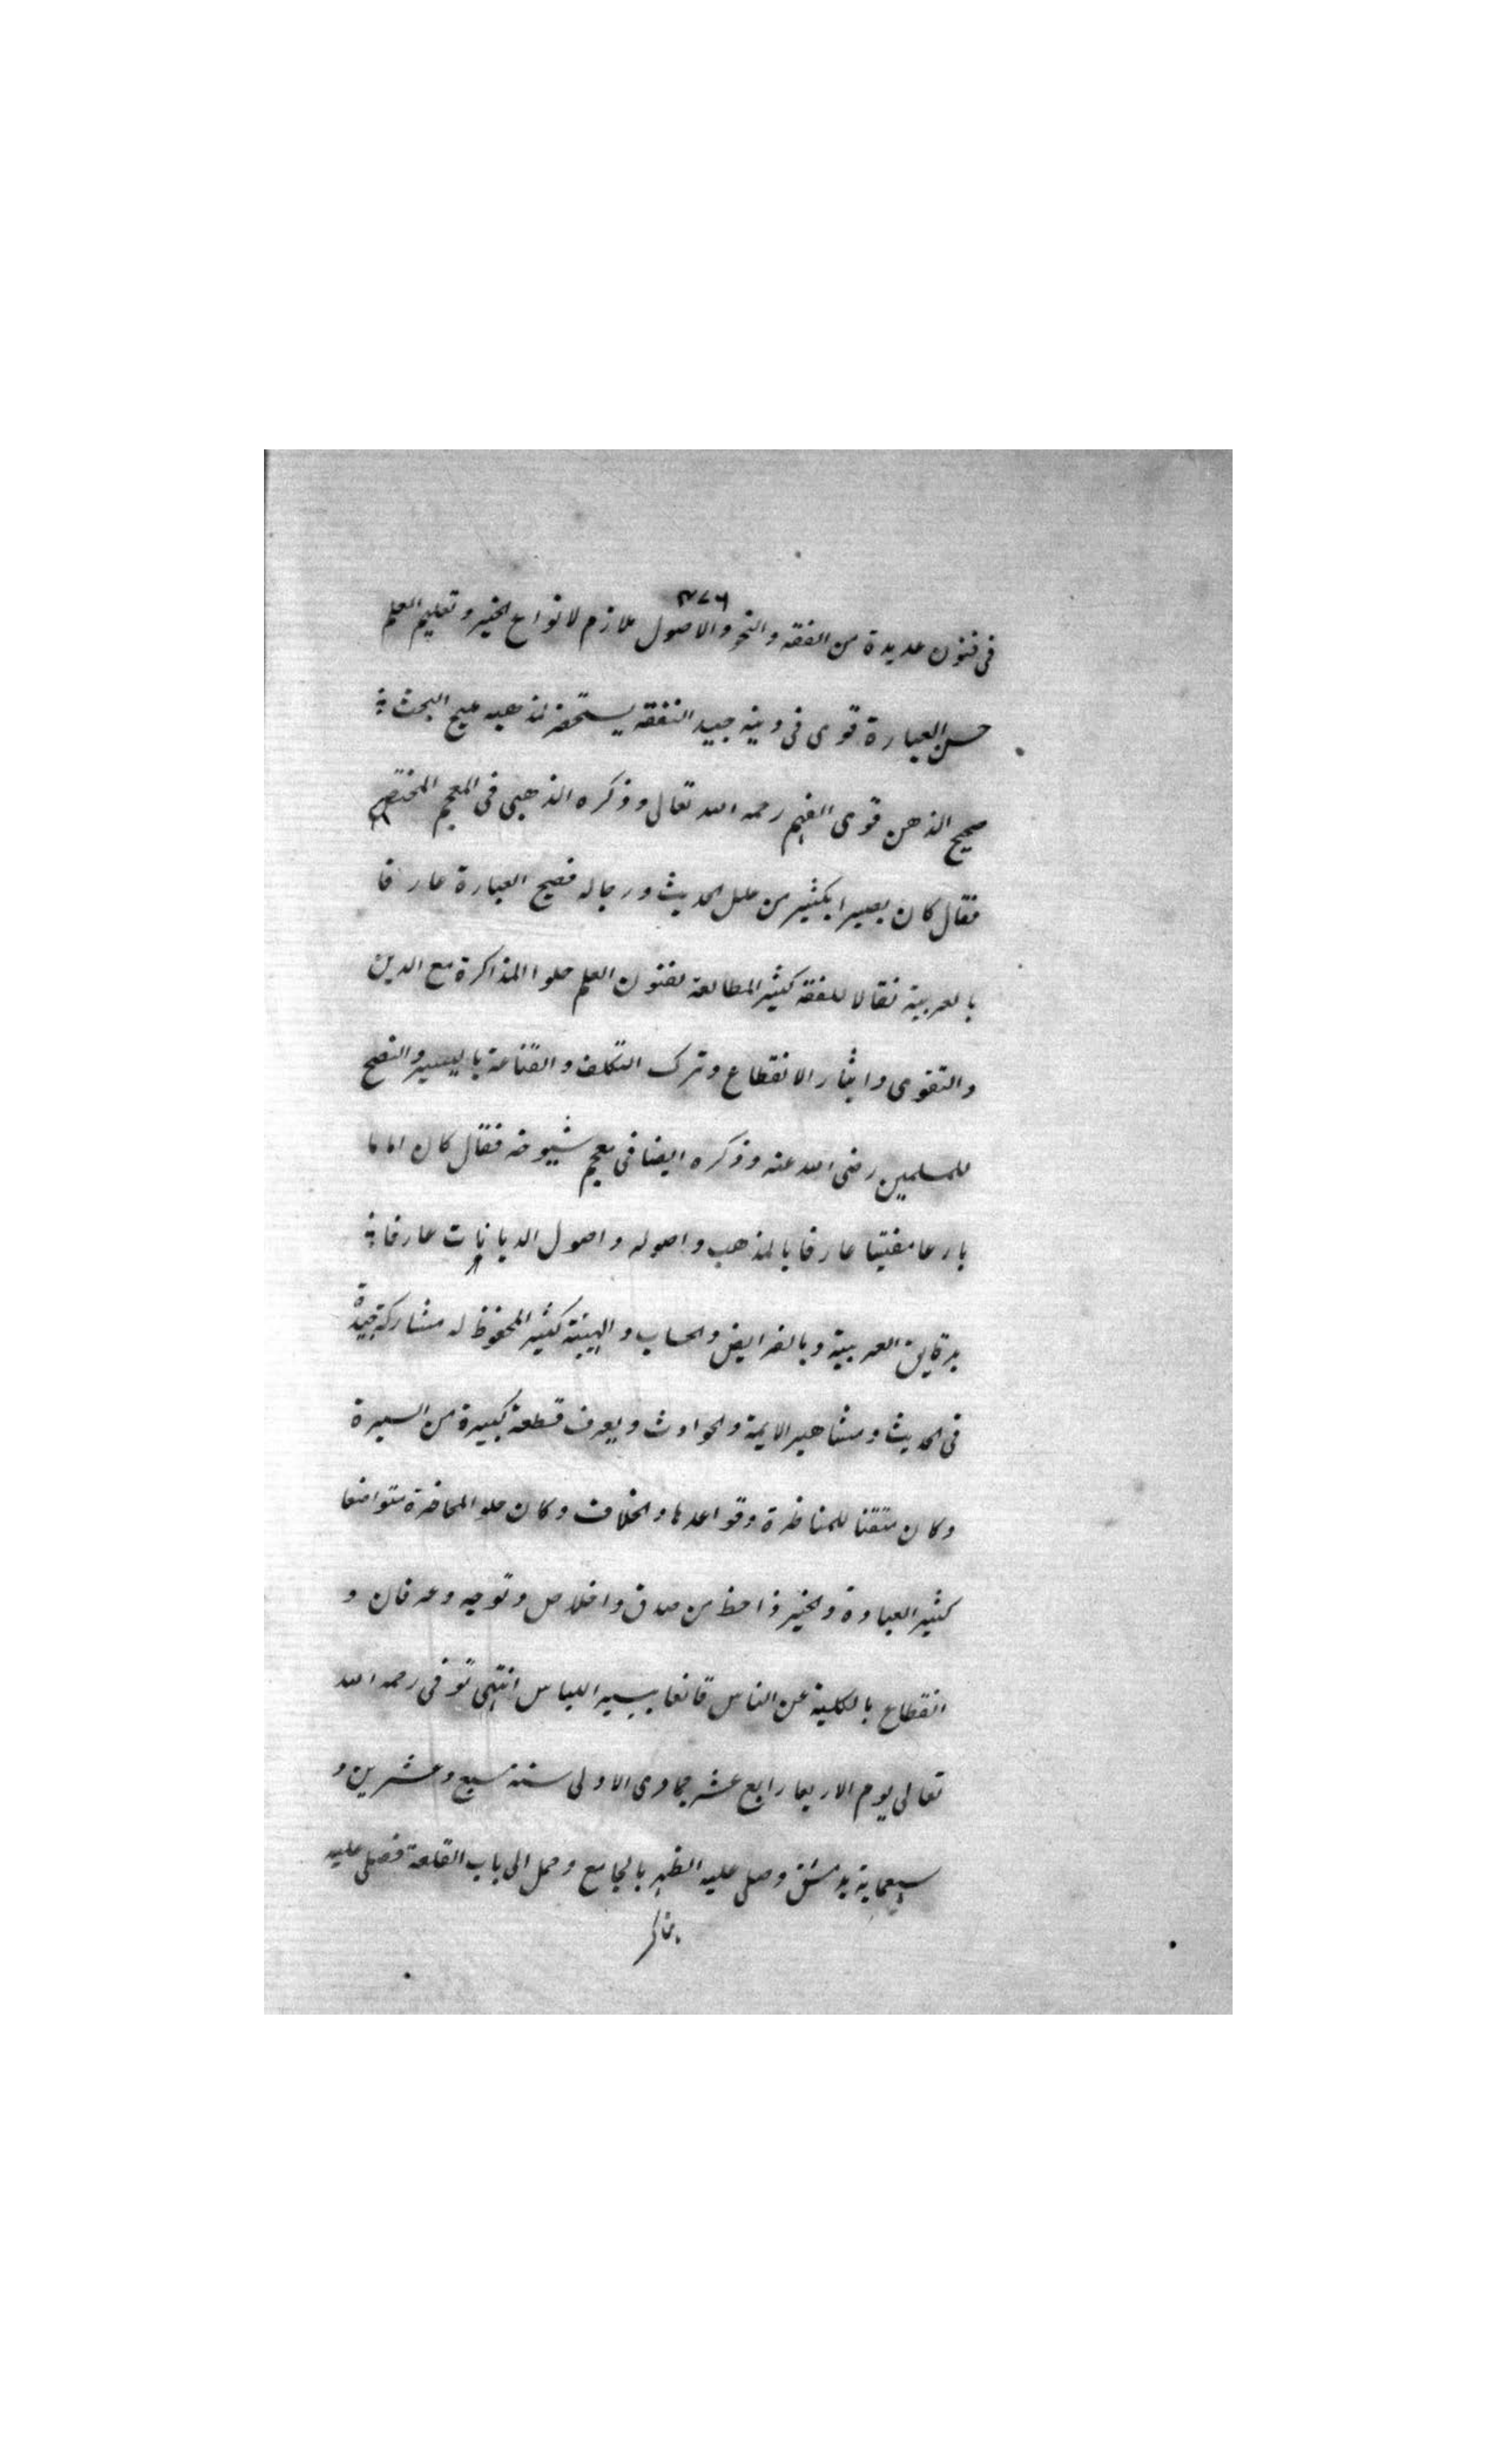 ٣٧٦
فى فنون عديدة من الفقه والنحو والاصول ملازم لانواع الخير وتعليم العلم
حسن العبارة قوى فى دينه جيد التفقه يستحضر لمذهبه مليح البحث
صحيح الذهن قوى الفهم رحمه الله تعالى وذكره الذهبى فى المعجم المختص
فقال كان بصيرا بكثير من علل الحديث ورجاله فصيح العبارة عارفا
بالعربية نقالا للفقه كثير المطالعة لفنون العلم حلوا المذاكرة مع الدين
والتقوى وايثار الانقطاع وترك التكلف والقناعة باليسير والنصح
للمسلمين رضى الله عنه وذكره ايضا فى معجم شيوخه فقال كان اماما
بارعا مفتيا عارفا بالمذهب واصوله واصول الديانات عارفا
بدقايق العربية وبالفرايض والحساب والهيئة كثير المحفوظ له مشاركة جيدة
فى الحديث ومشاهير الايمة والحوادث ويعرف قطعة كبيرة من السيرة
وكان متقنا للمناظرة وقواعدها والخلاف وكان حلو المحاضرة متواضعا
كثير العبادة والخير ذا حظ من صدق واخلاص وتوجه وعرفان و
انقطاع بالكلية عن الناس قانعا بيسير اللباس انتهى توفى رحمه الله
تعالى يوم الاربعا رابع عشر جمادى الاولى سنة سبع وعشرين و
سبعماية بدمشق وصلى عليه الظهر بالجامع وحمل الى باب القلعة فصلى عليه